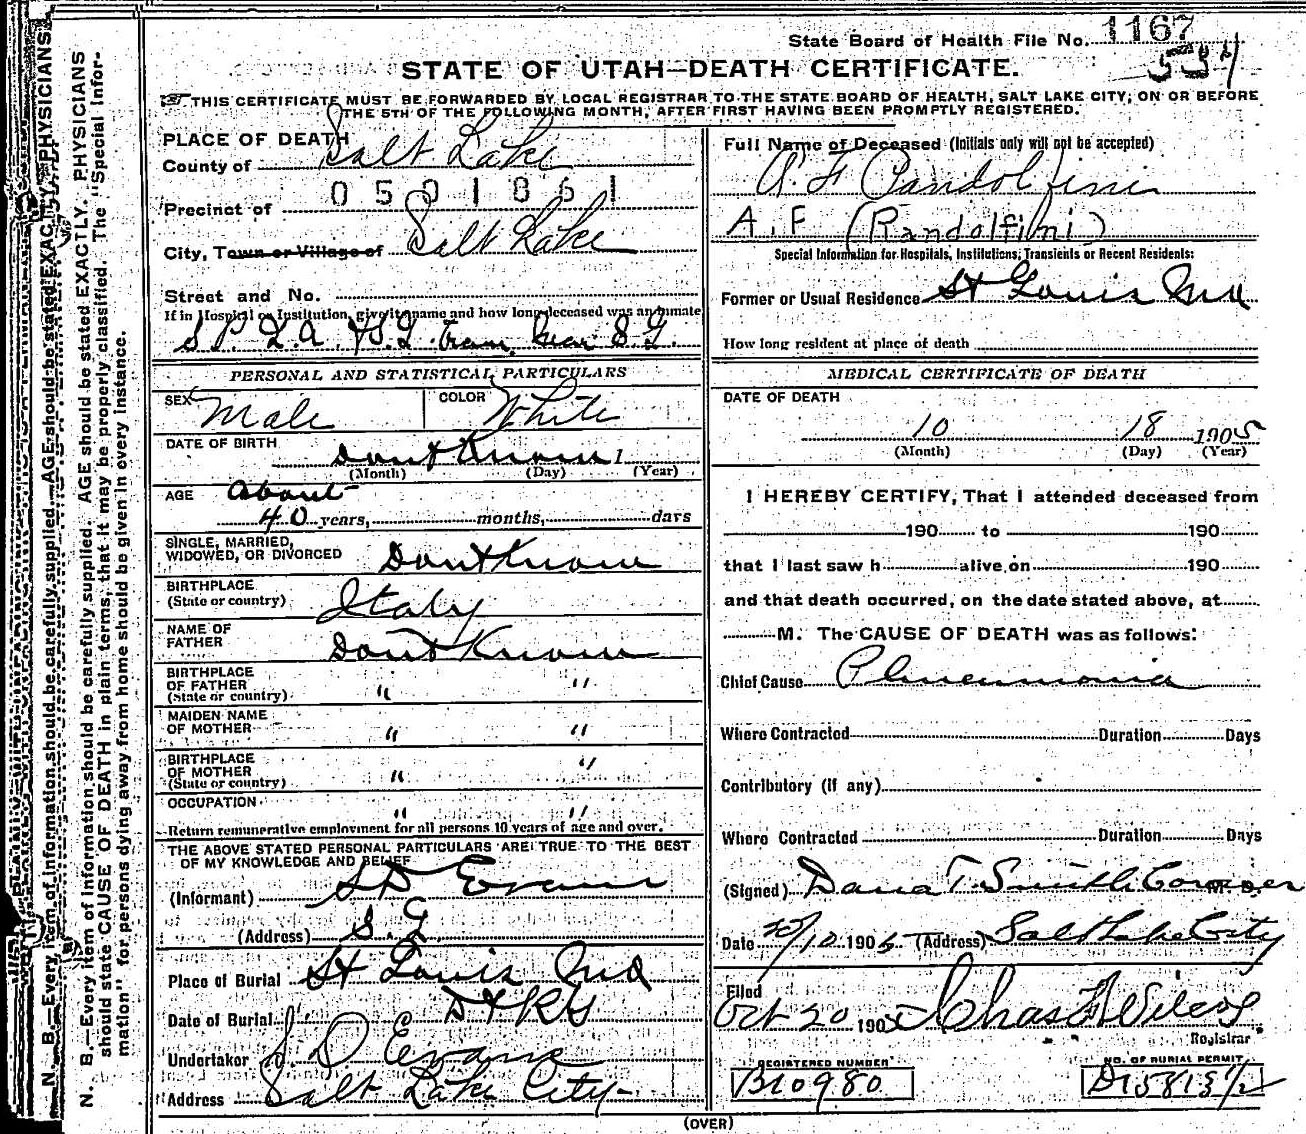 State Board of Health File No. 1167
534
STATE OF UTAH—DEATH CERTIFICATE.
THIS CERTIFICATE MUST BE FORWARDED BY LOCAL REGISTRAR TO THE STATE BOARD OF HEALTH, SALT LAKE CITY, ON OR BEFORE
THE 5TH OF THE FOLLOWING MONTH, AFTER FIRST HAVING BEEN PROMPTLY REGISTERED.
N. B.—Every item of information should be carefully supplied. AGE should be stated EXACTLY. PHYSICIANS
should state CAUSE OF DEATH in plain terms, that it may be properly classified. The "Special Infor-
mation" for persons dying away from home should be given in every instance.
PLACE OF DEATH
County of Salt Lake
0501861
Precinct of
City, Town or Village of Salt Lake
Street and No.
If in Hospital or Institution, give its name and how long deceased was an inmate
S P. L. A. & S. L. train near S. L.
PERSONAL AND STATISTICAL PARTICULARS
SEX Male COLOR White
DATE OF BIRTH
Dont Know 1
(Month) (Day) (Year)
AGE About
40 years, months, days
SINGLE, MARRIED,
WIDOWED, OR DIVORCED Dont Know
BIRTHPLACE
(State or country) Italy
NAME OF
FATHER Dont Know
BIRTHPLACE
OF FATHER
(State or country) " "
MAIDEN NAME
OF MOTHER " "
BIRTHPLACE
OF MOTHER
(State or country) " "
OCCUPATION " "
Return remunerative employment for all persons 10 years of age and over.
THE ABOVE STATED PERSONAL PARTICULARS ARE TRUE TO THE BEST
OF MY KNOWLEDGE AND BELIEF
(Informant) S D Evans
(Address) S. L.
Place of Burial St Louis Mo
Date of Burial
Undertaker S D Evans
Address Salt Lake City
Full Name of Deceased (Initials only will not be accepted)
A. F Pandolfini
A. F (Randolfini)
Special Information for Hospitals, Institutions, Transients or Recent Residents:
Former or Usual Residence St Louis Mo
How long resident at place of death
MEDICAL CERTIFICATE OF DEATH
DATE OF DEATH
10 18 1905
(Month) (Day) (Year)
I HEREBY CERTIFY, That I attended deceased from
190 to 190
that I last saw h alive on 190
and that death occurred, on the date stated above, at
M. The CAUSE OF DEATH was as follows:
Chief Cause Pneumonia
Where Contracted Duration Days
Contributory (if any)
Where Contracted Duration Days
(Signed) Dana T. Smith Coroner
Date 20/10 1905 (Address) Salt Lake City
Filed
Oct 20 1905 Chas F Wilcox
Registrar
REGISTERED NUMBER
B10980
NO. OF BURIAL PERMIT
D15813 1/2
(OVER)